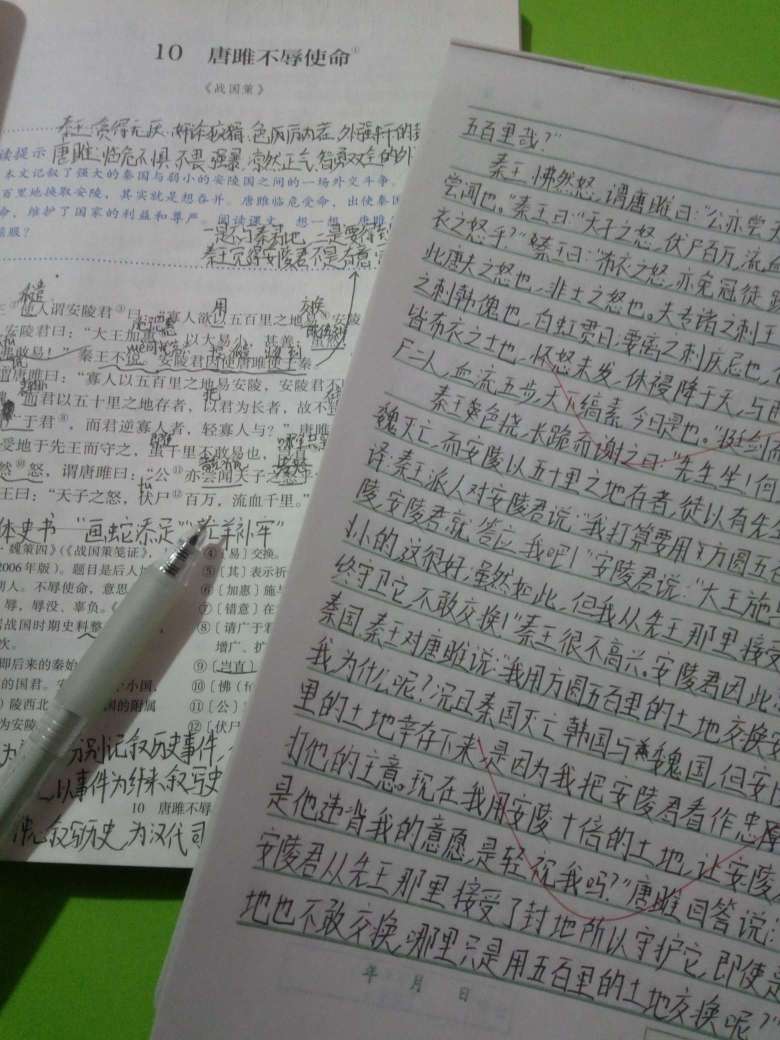 10 唐雎不辱使命①
《战国策》
秦王:贪得无厌、奸诈狡猾、色厉内荏、外强中干的
唐雎:临危不惧、不畏强暴、凛然正气、智勇双全的外
读提示
本文记叙了强大的秦国与弱小的安陵国之间的一场外交斗争。
百里地换取安陵,其实就是想吞并。唐雎临危受命,出使秦国
命,维护了国家的利益和尊严。阅读课文,想一想,唐雎
服?
秦王觉得安陵君不是
派遣
用
交换
王②使人谓安陵君③曰:“寡人欲以五百里之地易④安陵
安陵君曰:“大王加惠
以大易小,甚善;虽然
敢易!”秦王不悦。安陵君因使唐雎使于秦
谓唐雎曰:“寡人以五百里之地易安陵,安陵君不
而君以五十里之地存者,以君为长者,故不
于君⑧,而君逆寡人者,轻寡人与?”唐雎
受地于先王而守之,虽千里不敢易也,岂直
然⑩怒,谓唐雎曰:“公⑪亦尝闻天子之怒乎
王曰:“天子之怒,伏尸⑫百万,流血千里。”
体史书 “画蛇添足”“亡羊补牢”
·魏策四》(《战国策笺证》,
2006年版)。题目是后人
期人。不辱使命,意思
辱,辱没、辜负。
战国时期史料整
次。
即后来的秦始
的国君。安
小国,
〕陵西北
国的附属
为安陵
④〔易〕交换。
⑤〔其〕表示祈
⑥〔加惠〕施与
⑦〔错意〕在
⑧〔请广于君
增广、扩
⑨〔岂直
⑩〔怫(fú
⑪〔公〕
⑫〔伏尸
分别记叙历史事件,
以事件为纬来叙写史
10 唐雎不辱
叙写历史,为汉代司
五百里哉?”
秦王怫然怒,谓唐雎曰:“公亦尝
尝闻也。”秦王曰:“天子之怒,伏尸百万,流血
衣之怒乎?”秦王曰:“布衣之怒,亦免冠徒
此庸夫之怒也,非士之怒也。夫专诸之刺王
之刺韩傀也,白虹贯日;要离之刺庆忌也,
皆布衣之士也,怀怒未发,休祲降于天,与臣
尸二人,血流五步,天下缟素,今日是也。”挺剑而
秦王色挠,长跪而谢之曰:“先生坐!何
魏灭亡,而安陵以五十里之地存者,徒以有先
译:秦王派人对安陵君说:“我打算要用方圆五百
陵,安陵君就答应我吧!”安陵君说:“大王施
小的,这很好;虽然如此,但我从先王那里接受
终守卫它,不敢交换!”秦王很不高兴。安陵君因此
秦国。秦王对唐雎说:“我用方圆五百里的土地交换安
我为什么呢?况且秦国灭亡韩国与魏国,但安
里的土地幸存下来,是因为我把安陵君看作忠厚
打他的主意。现在我用安陵十倍的土地,让安陵
是他违背我的意愿,是轻视我吗?”唐雎回答说:
安陵君从先王那里接受了封地所以守护它,即使是
地也不敢交换,哪里只是用五百里的土地交换呢?”
年 月 日